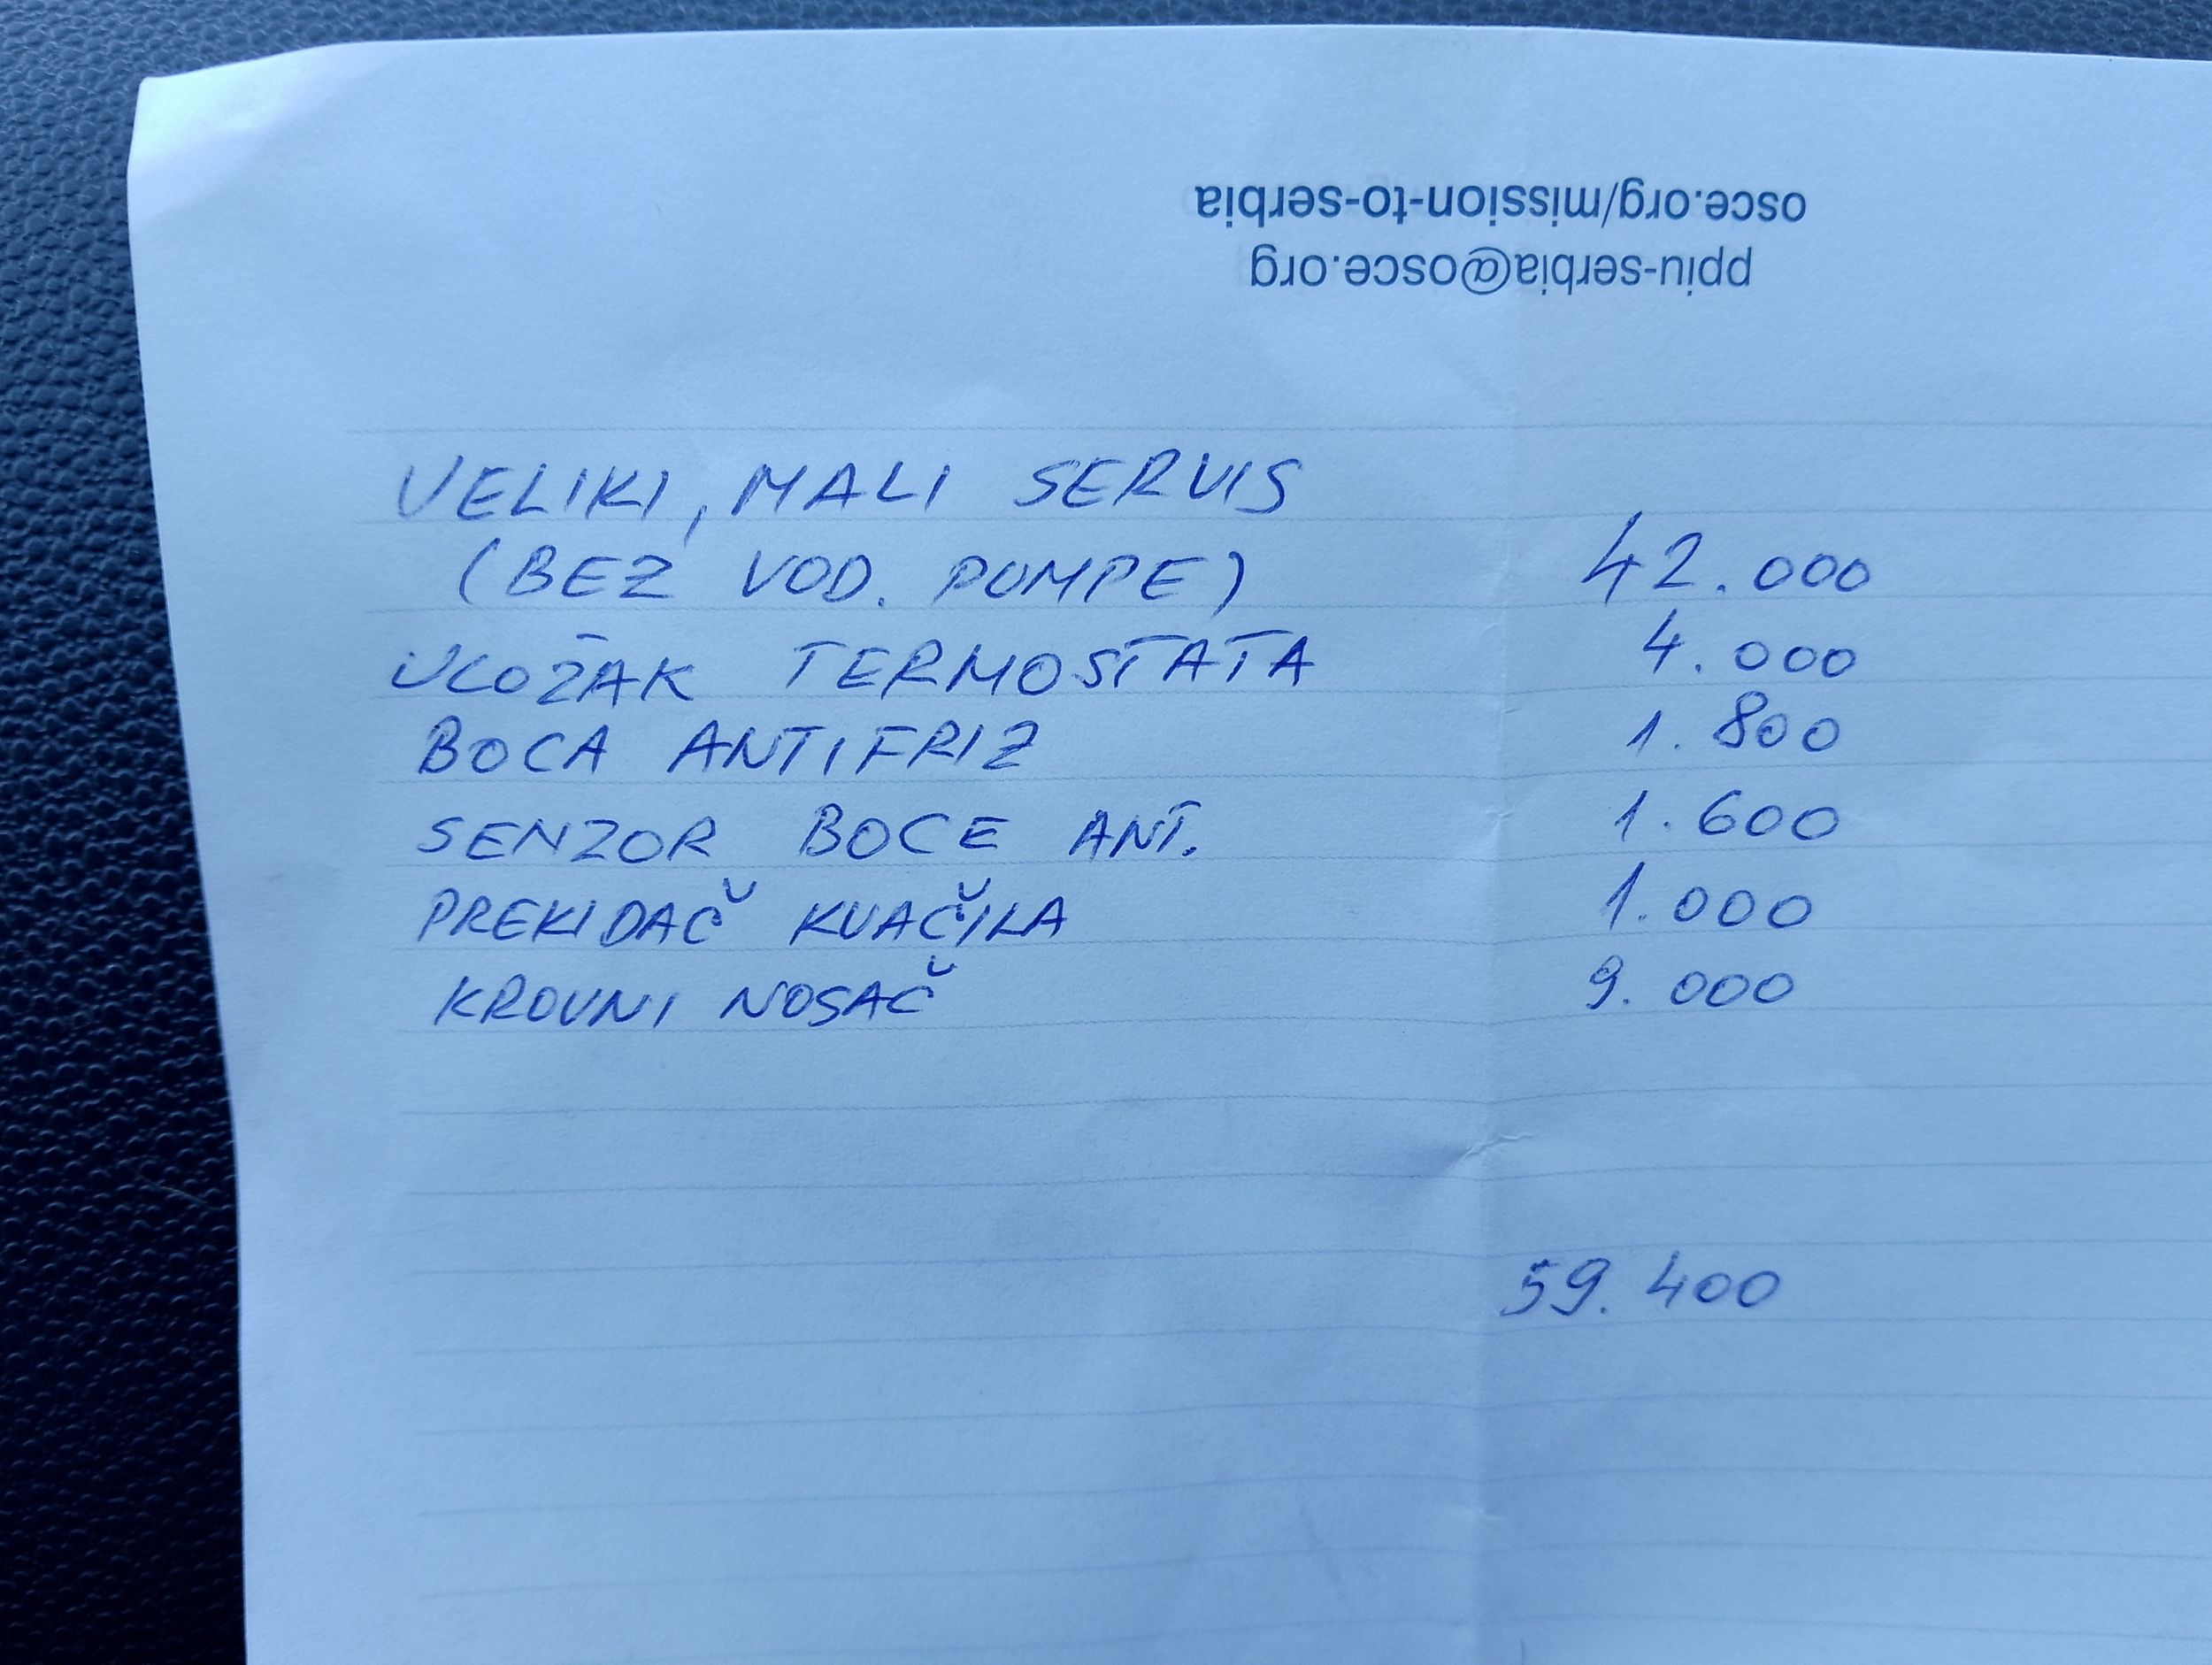 osce.org/mission-to-serbia
ppiu-serbia@osce.org
VELIKI, MALI SERVIS
(BEZ VOD. PUMPE) 42.000
ULOŽAK TERMOSTATA 4.000
BOCA ANTIFRIZ 1.800
SENZOR BOCE ANT. 1.600
PREKIDAČ KVAČILA 1.000
KROVNI NOSAČ 9.000
59.400